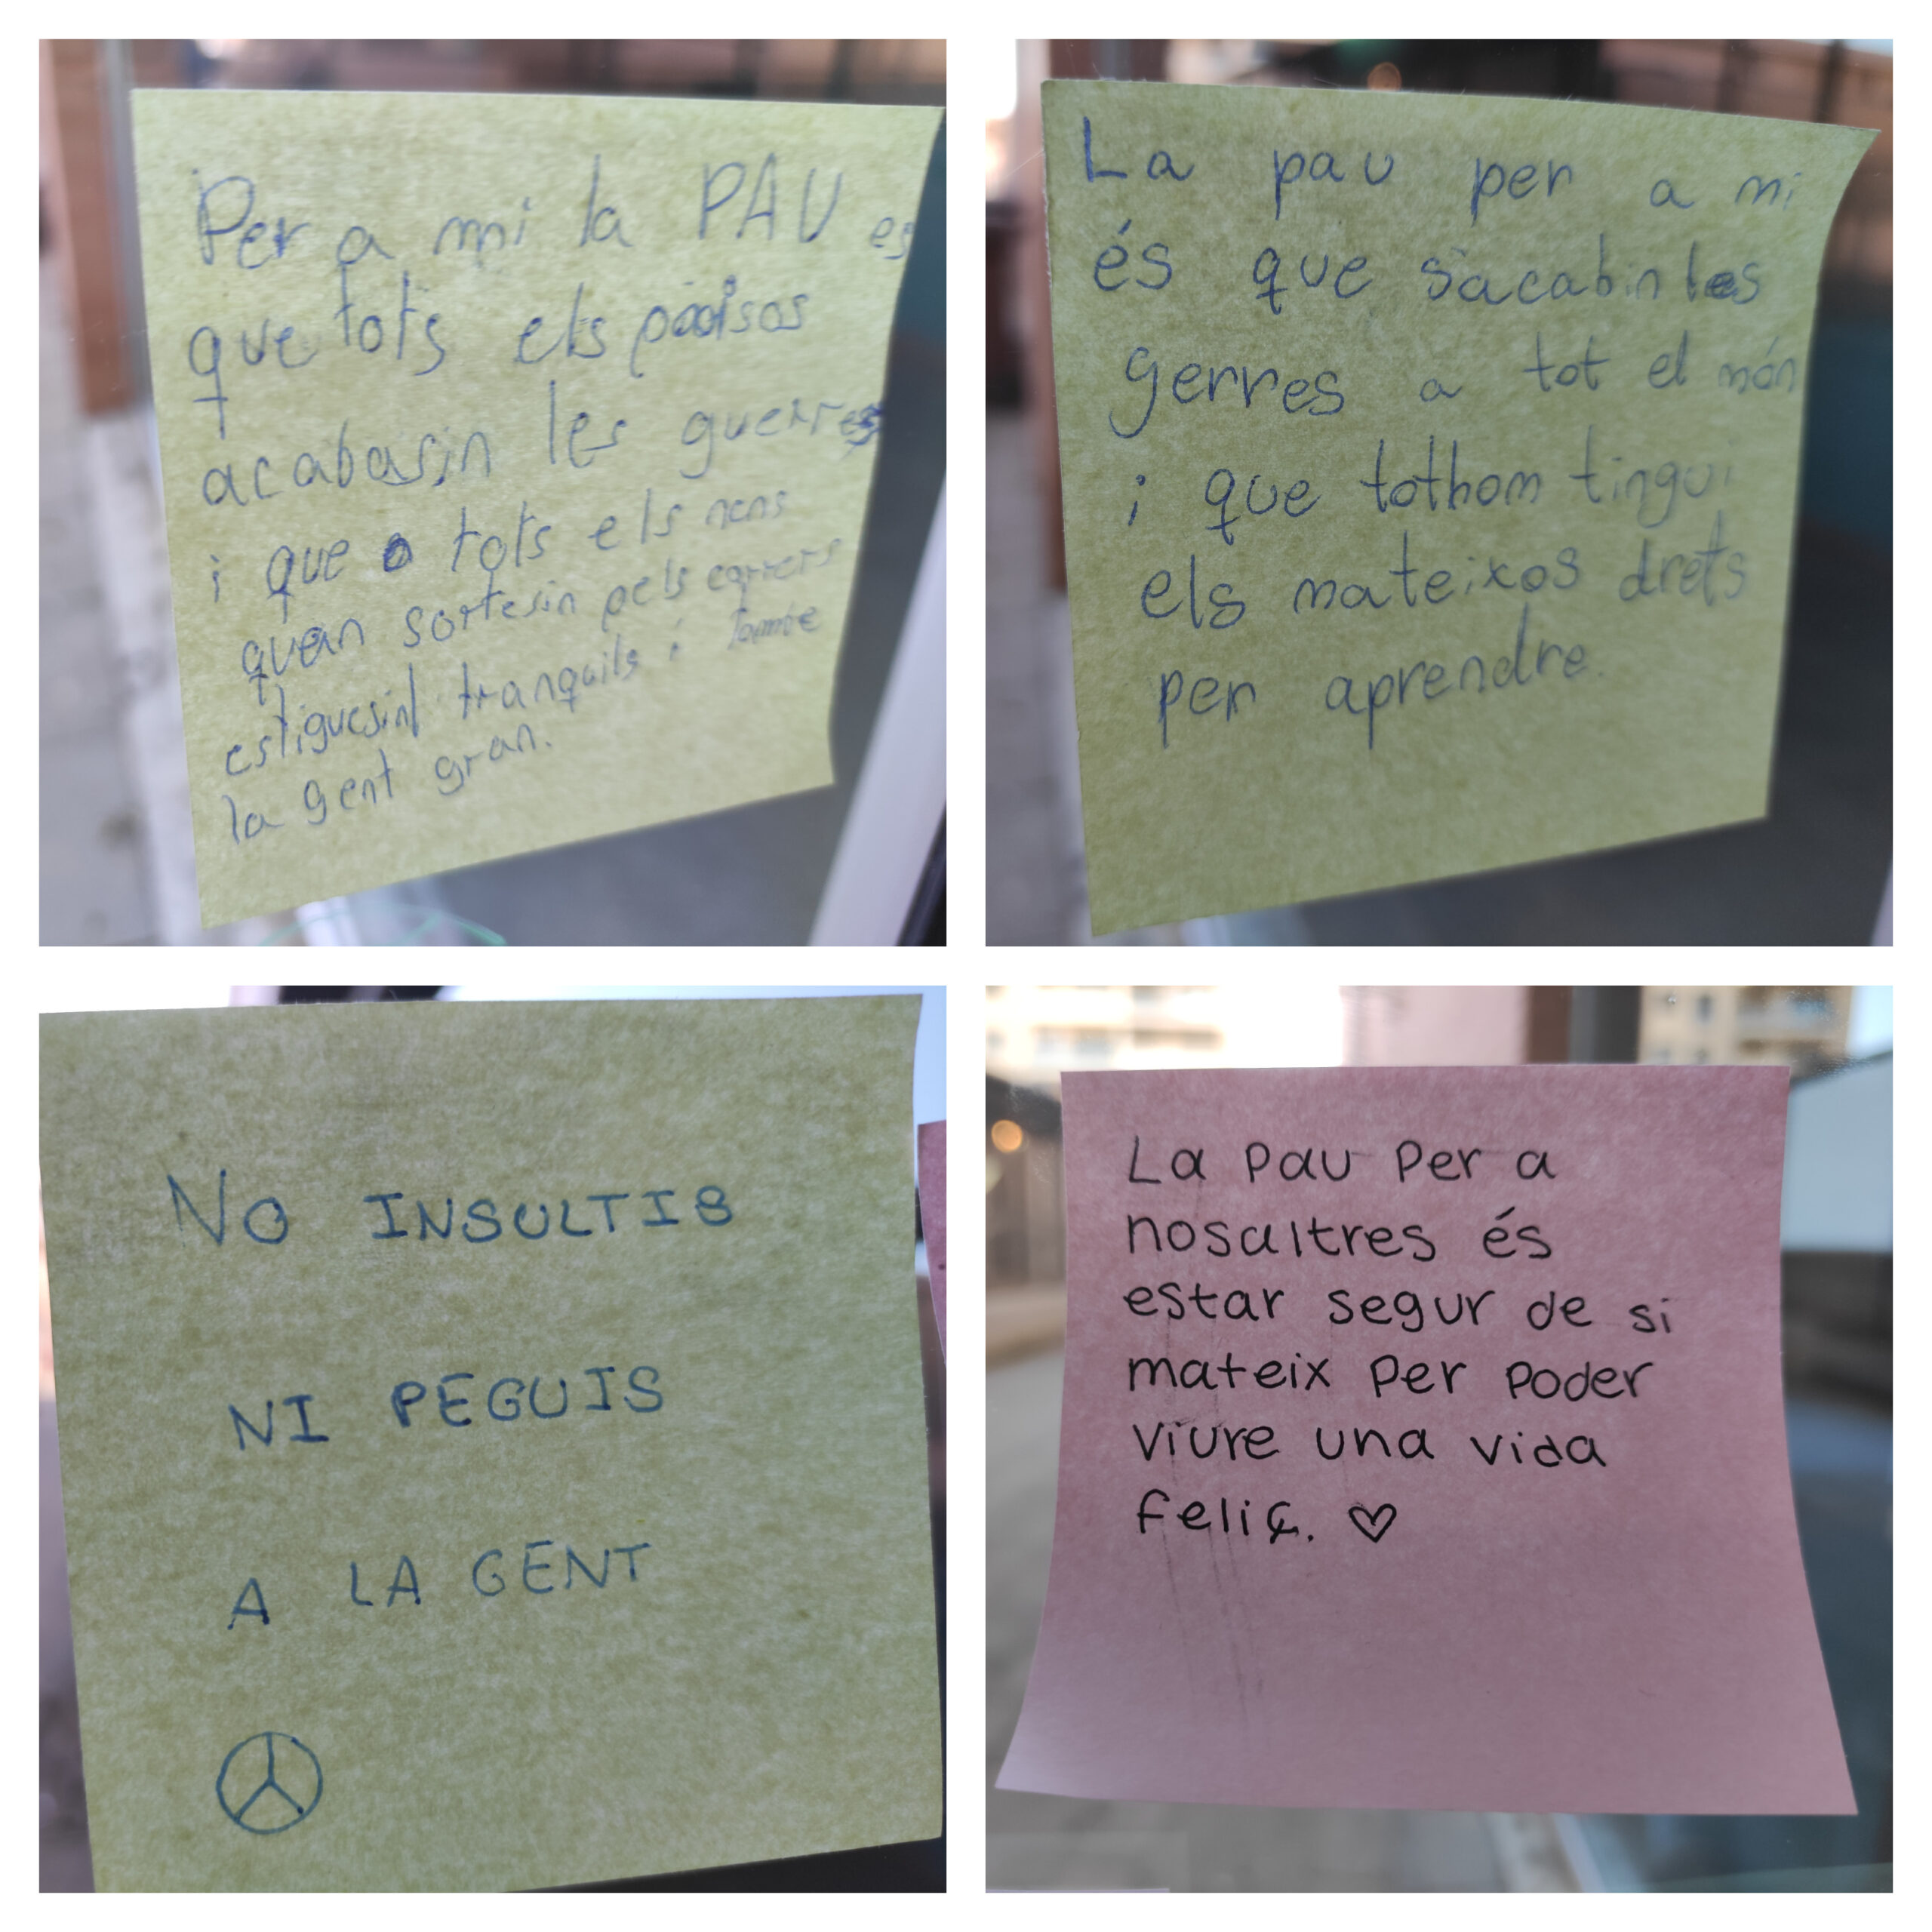 Per a mi la PAU es
que tots els països
acabasin les guerres
i que tots els nens
quan sortesin pels carrers
estiguesin tranquils i tambe
la gent gran.
La pau per a mi
és que s'acabin les
gerres a tot el món
i que tothom tingui
els mateixos drets
per aprendre.
No INSULTIS
NI PEGUIS
A LA GENT
La pau per a
nosaltres és
estar segur de si
mateix per poder
viure una vida
feliç. ♡